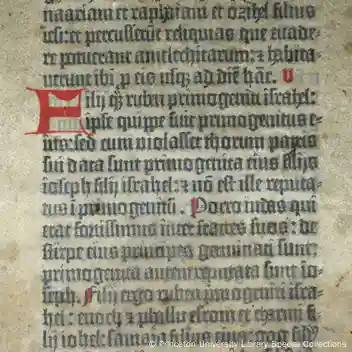 naariam et raphaiam et ozihel filius
iesi: et percusserūt reliquias que euade-
re potuerant amalechitarum: et habita-
uerunt ibi p eis usq; ad diē hāc. V
Filij q̄ ruben primogeniti israhel:
ipse quippe fuit primogenitus e-
ius: sed cum violasset thorum patris
sui data sunt primogenita eius filijs
ioseph filij israhel: et nō est ille reputa-
tus ī primogenitū. Porro iudas qui
erat fortissimus inter fratres suos: de
stirpe eius principes germinati sunt:
primogenita autem reputata sunt io-
seph. Filij ergo ruben primogeniti isra-
hel: enoch et phallu esrom et charmi fi-
lij iohel: samaia filius eius: gog
© Princeton University Library Special Collections